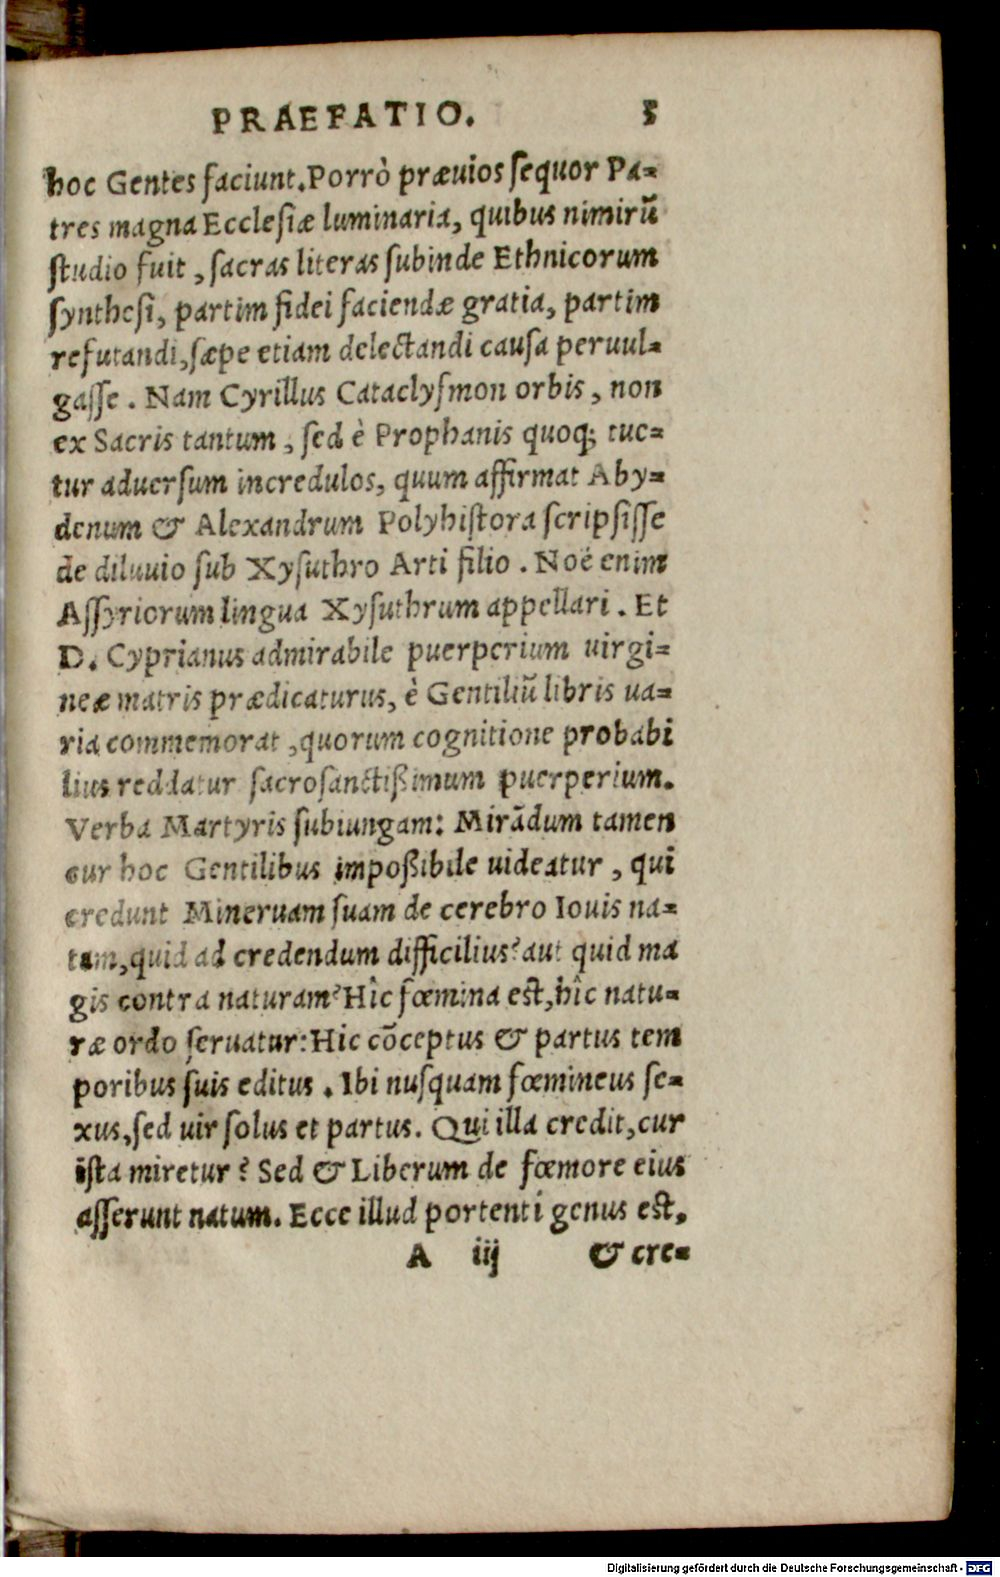 PRAEFATIO. 5
hoc Gentes faciunt. Porrò præuios sequor Pa-
tres magna Ecclesiæ luminaria, quibus nimirũ
studio fuit, sacras literas subinde Ethnicorum
synthesi, partim fidei faciendæ gratia, partim
refutandi, sæpe etiam delectandi causa peruul-
gasse. Nam Cyrillus Cataclysmon orbis, non
ex Sacris tantum, sed è Prophanis quoq; tue-
tur aduersum incredulos, quum affirmat Aby-
denum & Alexandrum Polyhistora scripsisse
de diluuio sub Xysuthro Arti filio. Noë enim
Assyriorum lingua Xysuthrum appellari. Et
D. Cyprianus admirabile puerperium uirgi-
neæ matris prædicaturus, è Gentiliũ libris ua-
ria commemorat, quorum cognitione probabi
lius reddatur sacrosanctißimum puerperium.
Verba Martyris subiungam: Mirãdum tamen
cur hoc Gentilibus impoßibile uideatur, qui
credunt Mineruam suam de cerebro Iouis na-
tam, quid ad credendum difficilius? aut quid ma
gis contra naturam? Hîc fœmina est, hîc natu-
ræ ordo seruatur: Hic cõceptus & partus tem
poribus suis editus. Ibi nusquam fœmineus se-
xus, sed uir solus et partus. Qui illa credit, cur
ista miretur? Sed & Liberum de fœmore eius
asserunt natum. Ecce illud portenti genus est,
A iij & cre-
Digitalisierung gefördert durch die Deutsche Forschungsgemeinschaft - DFG